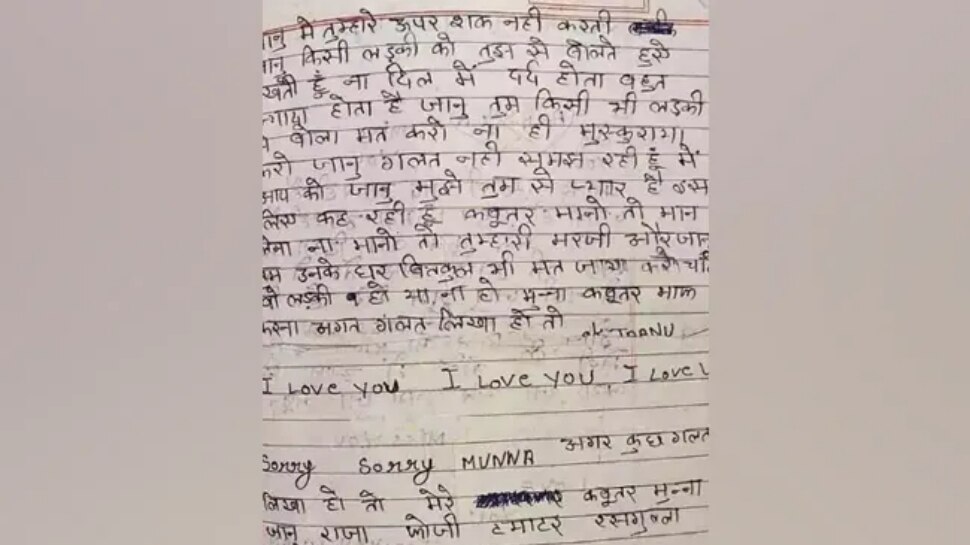 जानु मे तुम्हारे ऊपर शक नही करती
जानु किसी लड़की को तुझ से बोलते हुऐ
देखती हूँ ना दिल में दर्द होता बहुत
ज्यादा होता है जानु तुम किसी भी लड़की
से बोला मत करो ना ही मुस्कुराया
करो जानु गलत नही समझ रही हूँ में
आप को जानु मुझे तुम से प्यार है इस
लिए कह रही हूँ कबूतर मानो तो मान
लेना ना मानो तो तुम्हारी मरजी और जान
तुम उनके घर बिलकुल भी मत जाया करो चाहे
वो लड़की हो या ना हो मुन्ना कबूतर माफ
करना अगत गलत लिखा हो तो ok JAANU
I LOVE YOU I LOVE YOU I LOVE
Sorry Sorry MUNNA अगर कुछ गलत
लिखा हो तो मेरे कबूतर मुन्ना
जानु राजा फोजी टमाटर रसगुल्ला